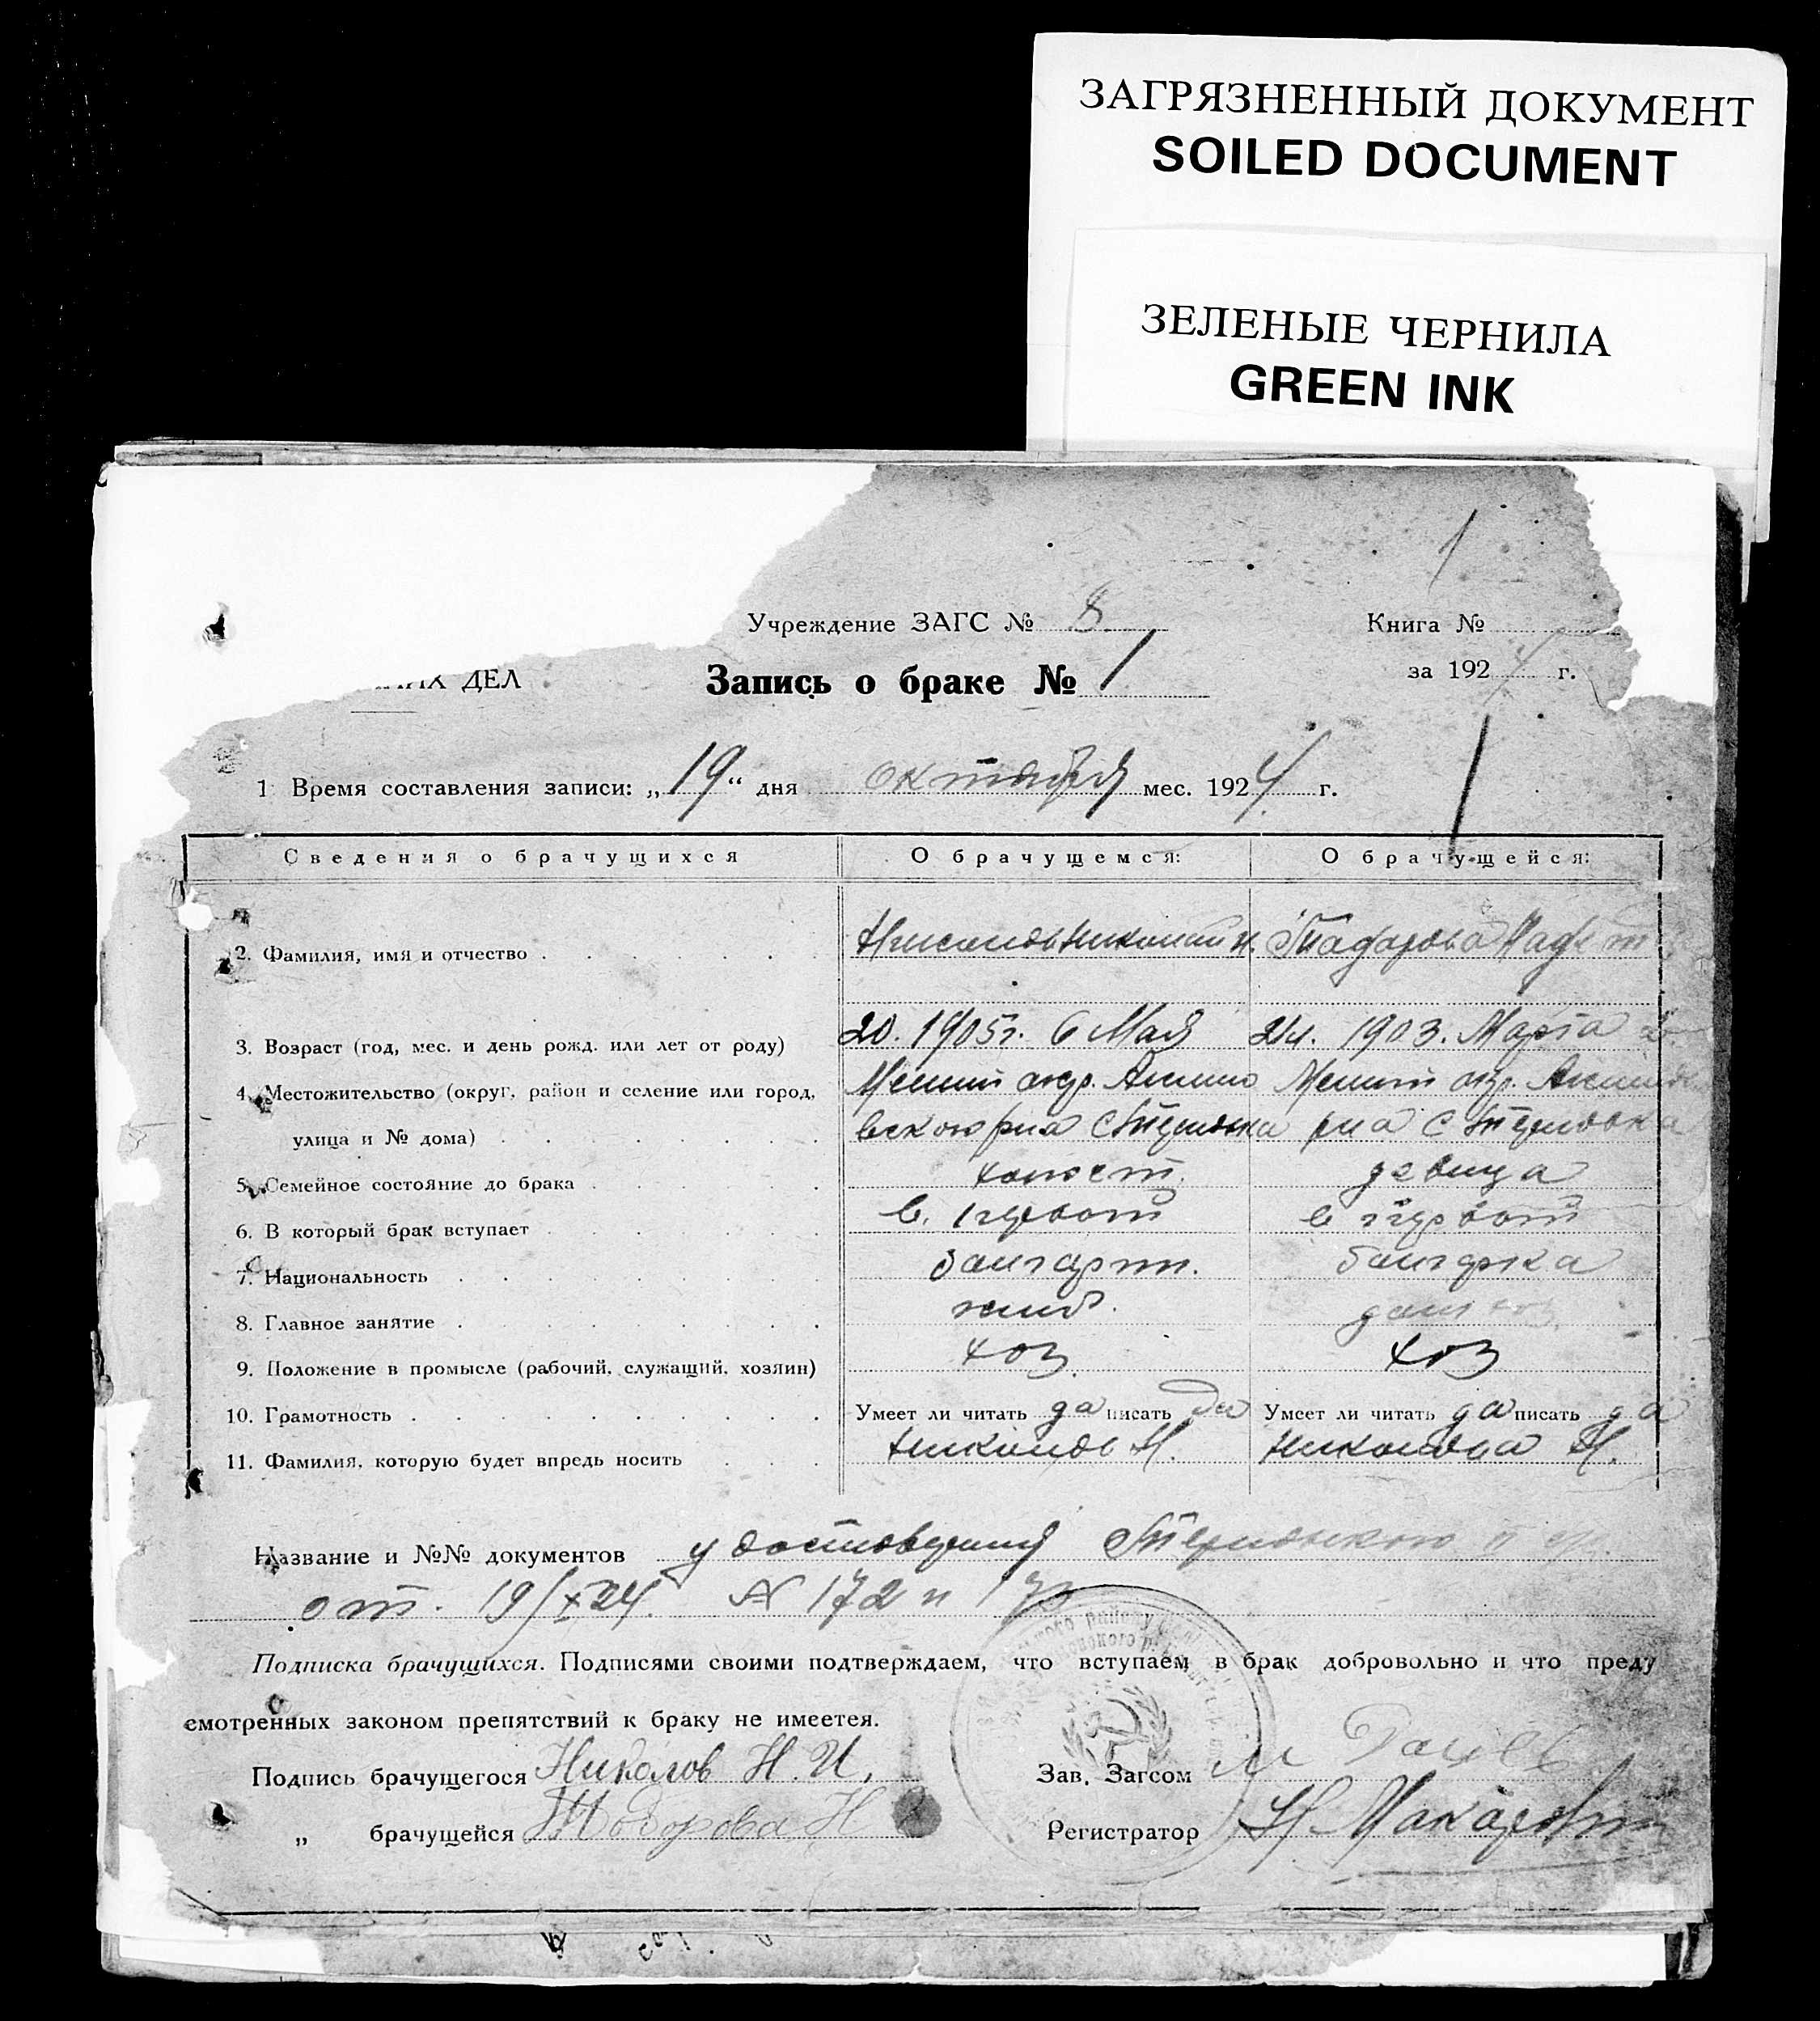 ЗАГРЯЗНЕННЫЙ ДОКУМЕНТ
SOILED DOCUMENT
ЗЕЛЕНЫЕ ЧЕРНИЛА
GREEN INK
1
Учреждение ЗАГС № 8 Книга №
ДЕЛ Запись о браке № 1 за 1924 г.
1 Время составления записи: „19“ дня октября мес. 1924 г. 1
Сведения о брачущихся О брачущемся: О брачущейся:
2. Фамилия, имя и отчество Николов Николай И. Тодорова
3. Возраст (год, мес. и день рожд. или лет от роду) 20. 1905 г. 6 Мая 21 л. 1903. Марта
4. Местожительство (округ, район и селение или город, Мелит окр. Акимо Мелит окр. Акимов
улица и № дома) вского р на С рна С
5. Семейное состояние до брака холост. девица
6. В который брак вступает в. первый в первый
7. Национальность болгарин. болгарка
8. Главное занятие хлеб. дом хоз.
9. Положение в промысле (рабочий, служащий, хозяин) хоз. хоз
10. Грамотность Умеет ли читать да писать да Умеет ли читать да писать да
11. Фамилия, которую будет впредь носить Николов Н. Николова Н.
Название и №№ документов удостоверения
от. 19/X 24. № 172 и 173
Подписка брачущихся. Подписями своими подтверждаем, что вступаем в брак добровольно и что преду
смотренных законом препятствий к браку не имеется.
Подпись брачущегося Николов Н. И. Зав. Загсом
„ брачущейся Тодорова Н Регистратор Н. Макаров